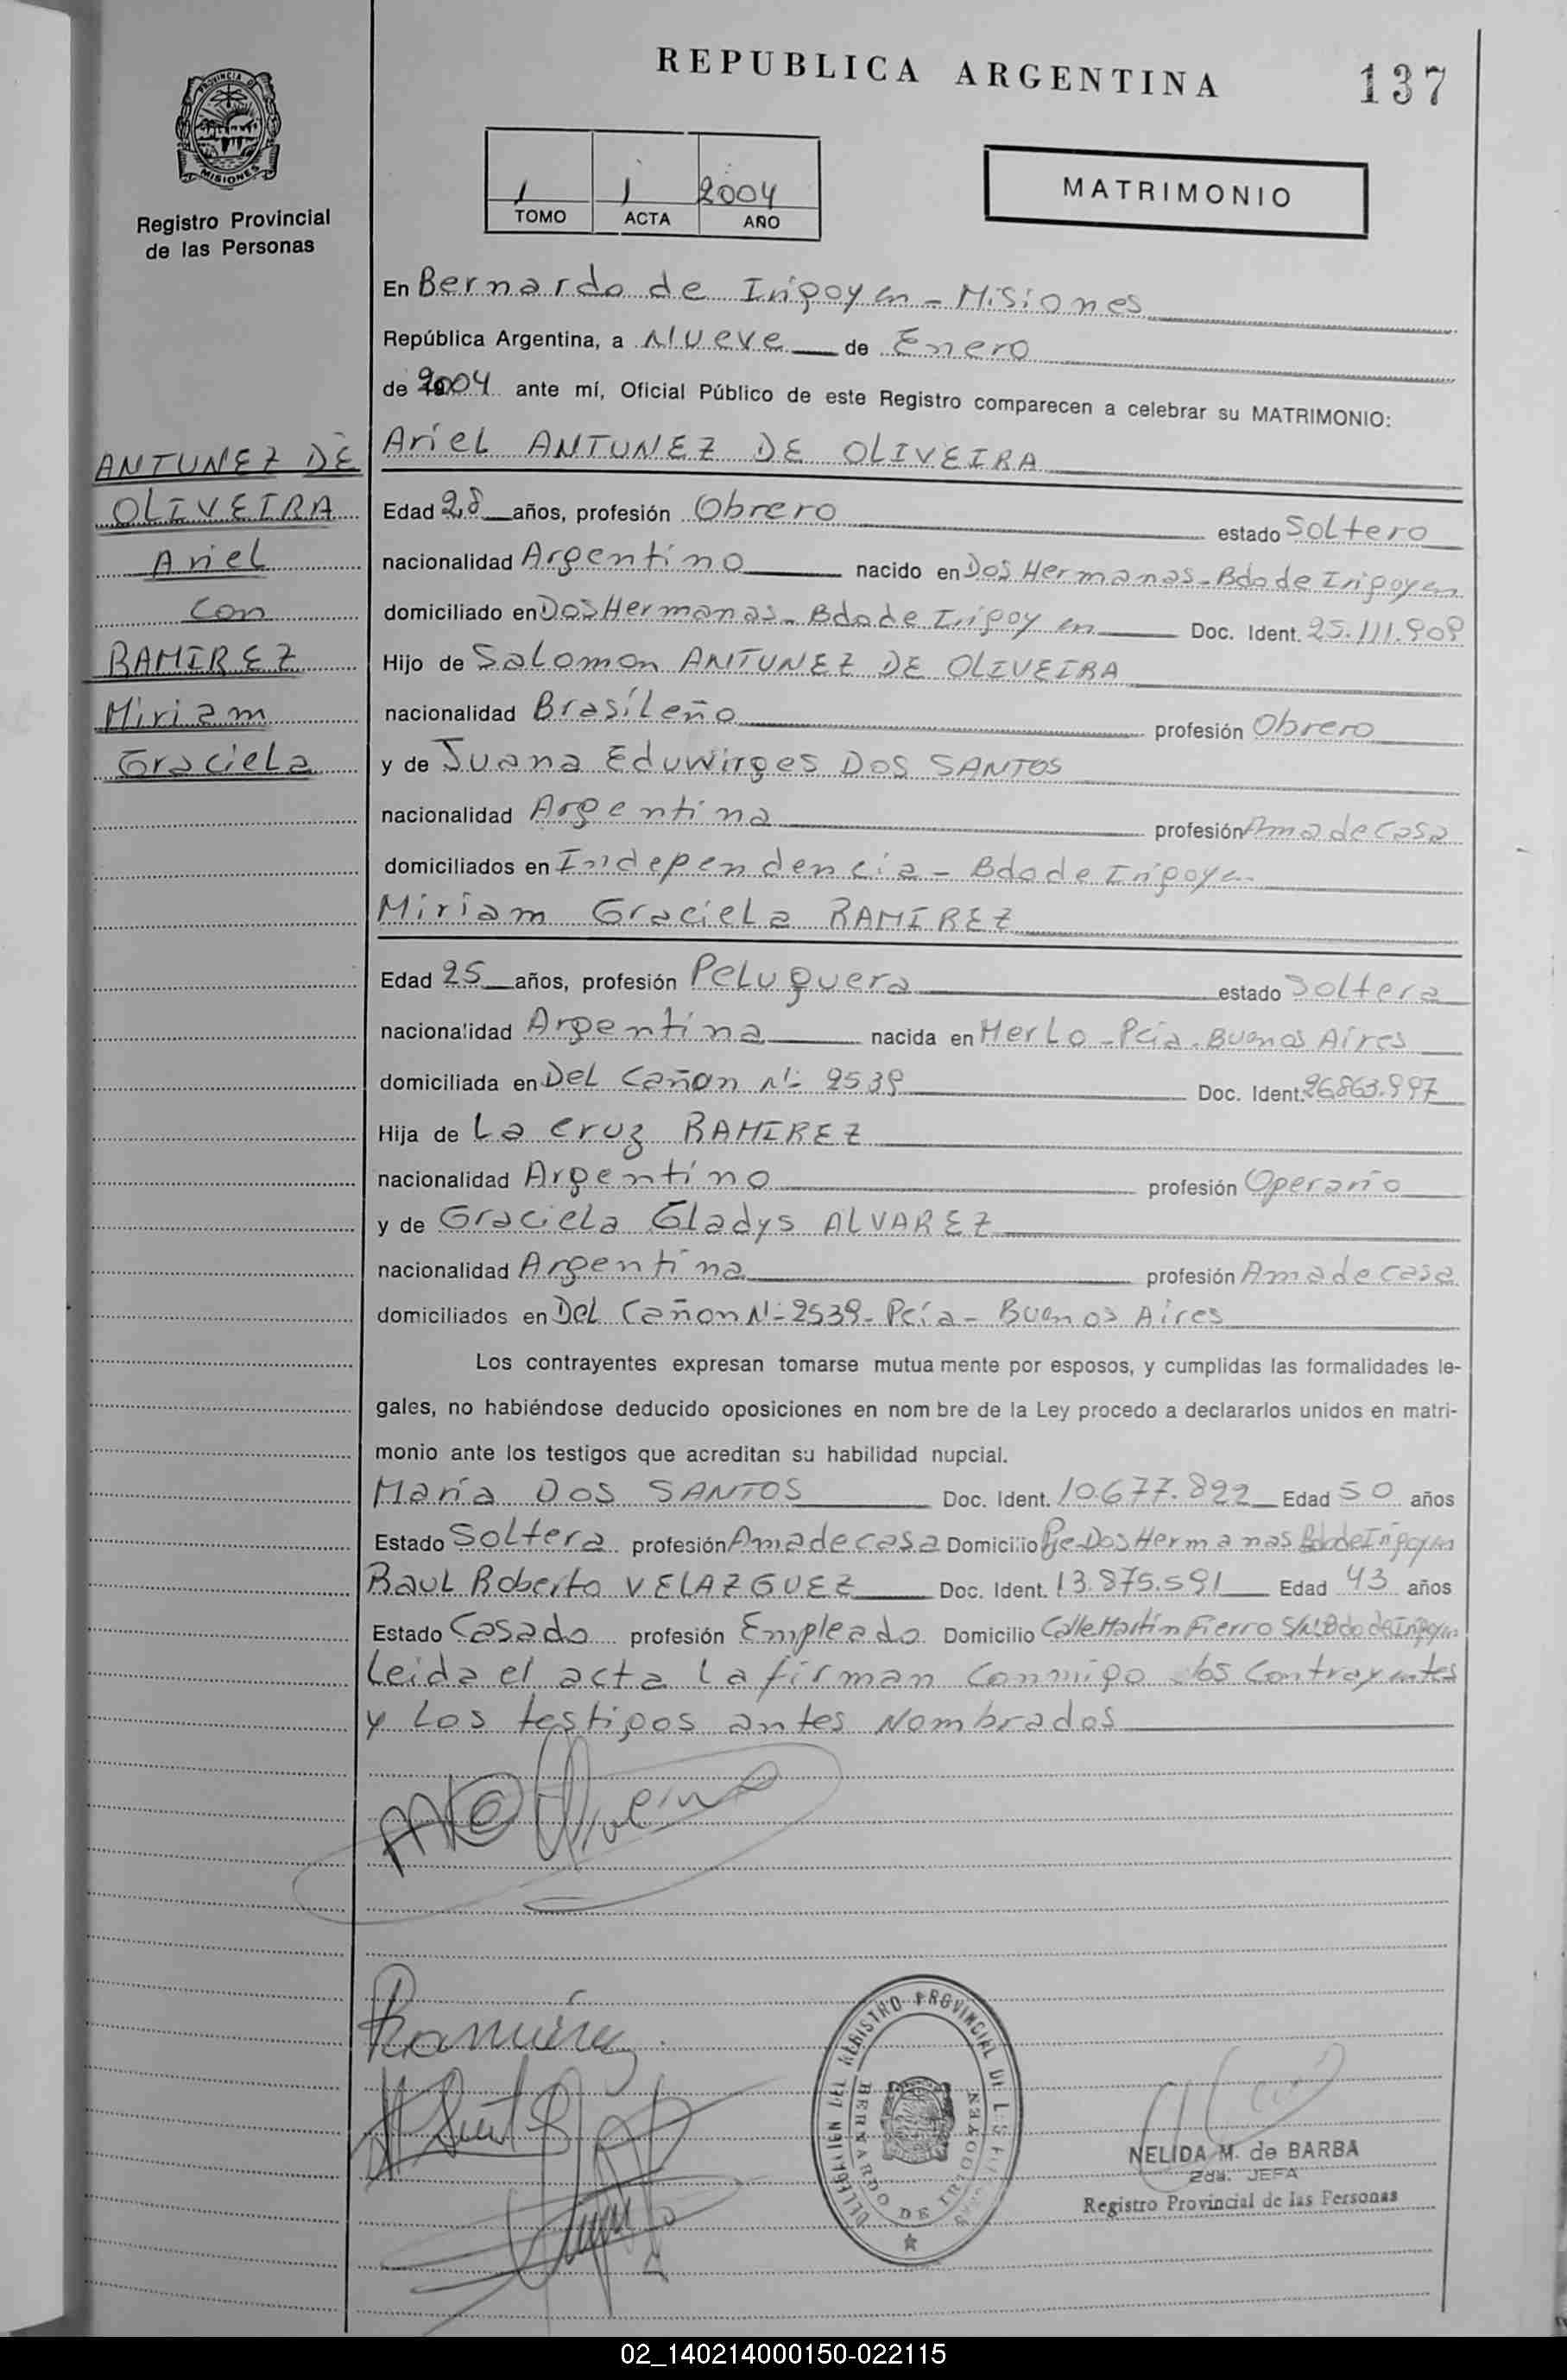 REPUBLICA ARGENTINA
137
PROVINCIA DE
MISIONES
Registro Provincial
de las Personas
1 1 2004
TOMO ACTA AÑO
MATRIMONIO
En Bernardo de Irigoyen - Misiones
República Argentina, a Nueve de Enero
de 2004 ante mí, Oficial Público de este Registro comparecen a celebrar su MATRIMONIO:
ANTUNEZ DE
OLIVEIRA
Ariel
con
RAMIREZ
Miriam
Graciela
Ariel ANTUNEZ DE OLIVEIRA
Edad 28 años, profesión Obrero estado Soltero
nacionalidad Argentino nacido en Dos Hermanas - Bdo de Irigoyen
domiciliado en Dos Hermanas - Bdo de Irigoyen Doc. Ident. 25.111.909
Hijo de Salomon ANTUNEZ DE OLIVEIRA
nacionalidad Brasileño profesión Obrero
y de Juana Eduwirges DOS SANTOS
nacionalidad Argentina profesión Ama de casa
domiciliados en Independencia - Bdo de Irigoyen
Miriam Graciela RAMIREZ
Edad 25 años, profesión Peluquera estado Soltera
nacionalidad Argentina nacida en Merlo - Pcia. Buenos Aires
domiciliada en Del Cañon Nº 2539 Doc. Ident. 26.863.997
Hija de La Cruz RAMIREZ
nacionalidad Argentino profesión Operario
y de Graciela Gladys ALVAREZ
nacionalidad Argentina profesión Ama de casa
domiciliados en Del Cañon Nº 2539 - Pcía - Buenos Aires
Los contrayentes expresan tomarse mutua mente por esposos, y cumplidas las formalidades le-
gales, no habiéndose deducido oposiciones en nom bre de la Ley procedo a declararlos unidos en matri-
monio ante los testigos que acreditan su habilidad nupcial.
María DOS SANTOS Doc. Ident. 10.677.822 Edad 50 años
Estado Soltera profesión Ama de casa Domicilio Pje Dos Hermanas Bdo de Irigoyen
Raul Roberto VELAZGUEZ Doc. Ident. 13.875.591 Edad 43 años
Estado Casado profesión Empleado Domicilio Calle Martín Fierro S/Nº Bdo de Irigoyen
Leida el acta la firman conmigo los contrayentes
y los testigos antes Nombrados
Oliveira
Ramírez
DELEGACION DEL REGISTRO PROVINCIAL DE LAS
BERNARDO DE IRIGOYEN
NELIDA M. de BARBA
2da. JEFA
Registro Provincial de las Personas
02_140214000150-022115